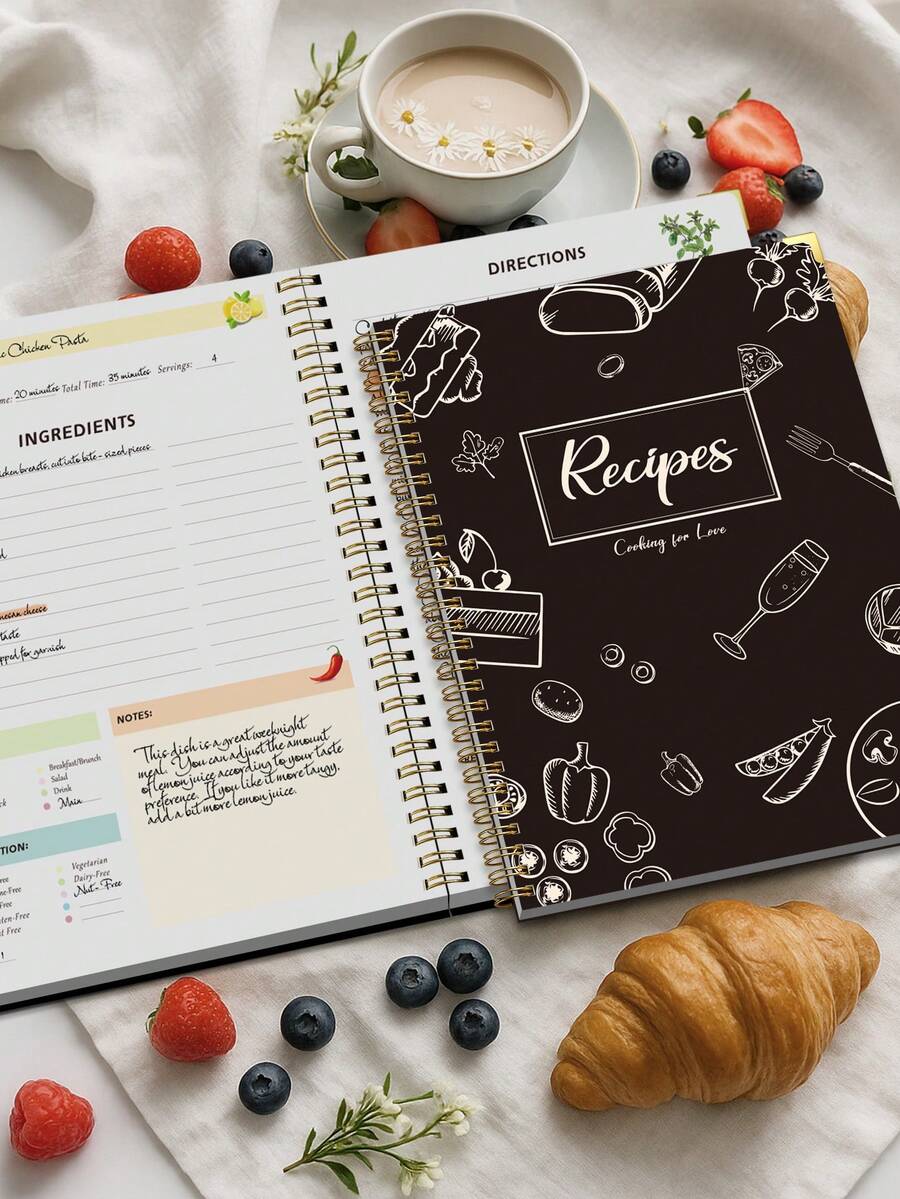 Chicken Pasta
20 minutes Total Time: 35 minutes Servings: 4
INGREDIENTS
chicken breasts, cut into bite-sized pieces
cheese
taste
for garnish
Breakfast/Brunch
Salad
Drink
Main
Vegetarian
Dairy-Free
Nut-Free
NOTES:
This dish is a great weeknight
meal. You can adjust the amount
of lemon juice according to your taste
preference. If you like it more tangy,
add a bit more lemon juice.
DIRECTIONS
Recipes
Cooking for Love